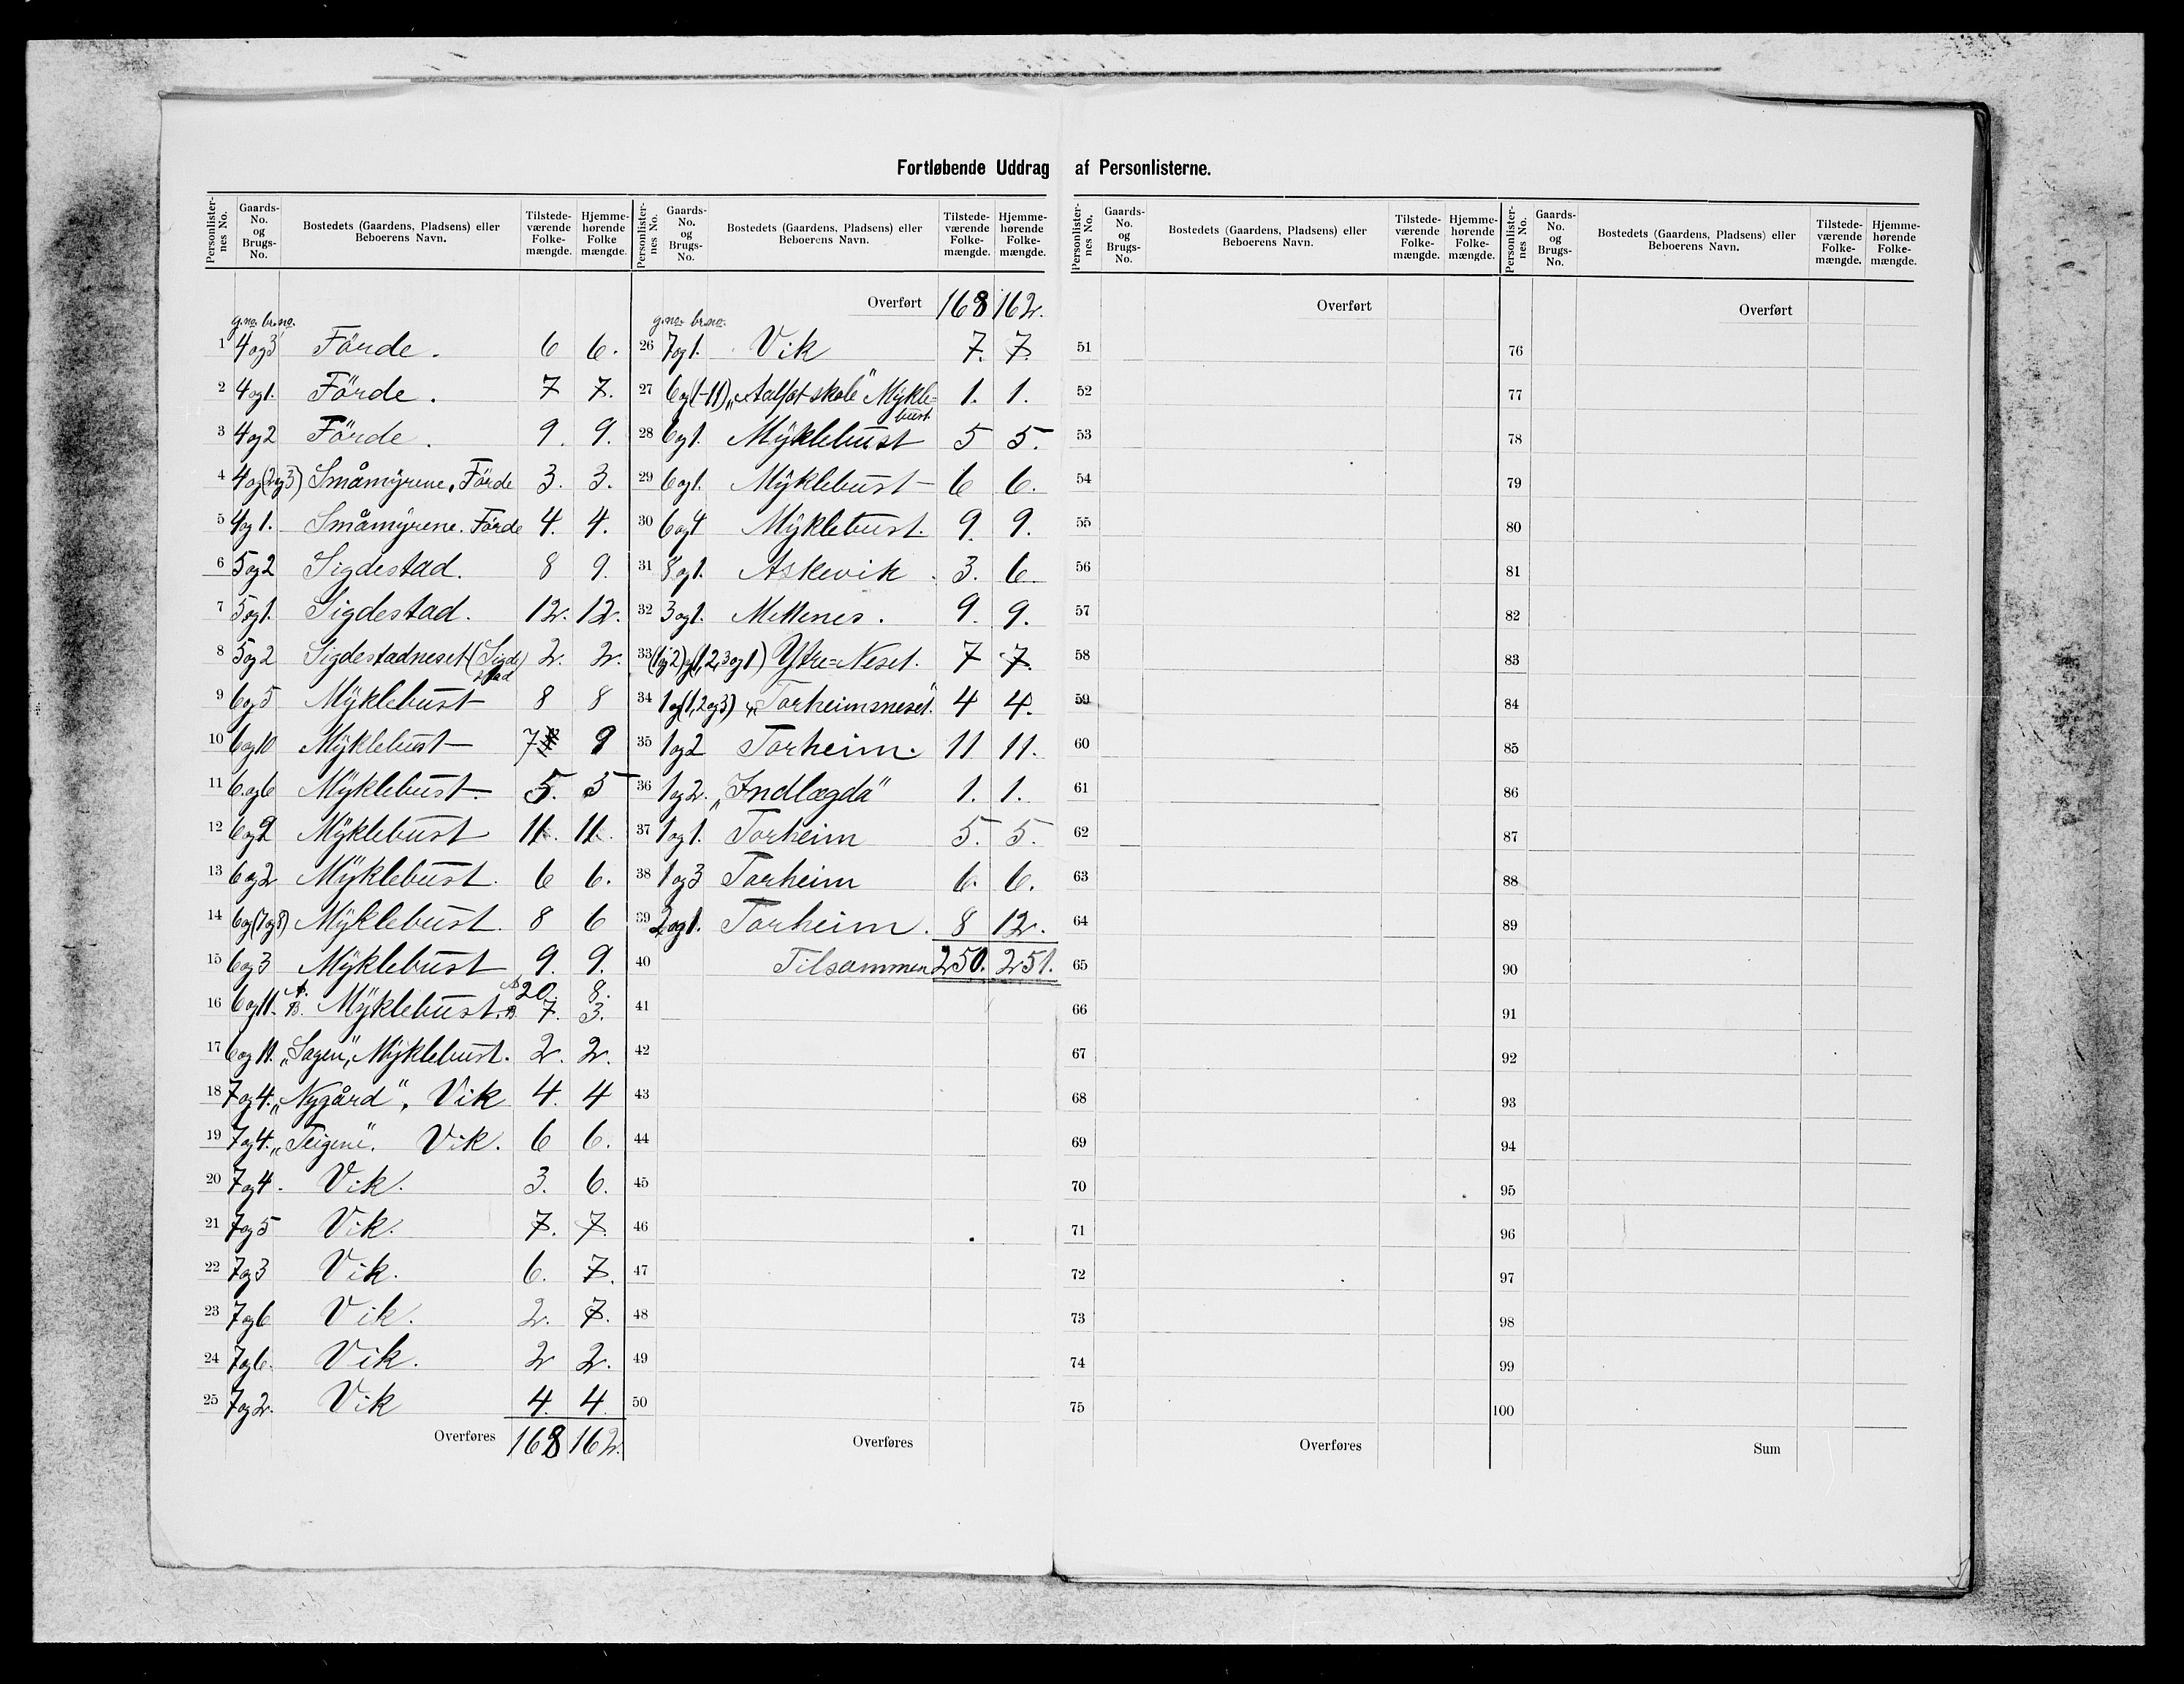 Fortløbende Uddrag af Personlisterne.
Personlister-nes No. Gaards-No. og Brugs-No. Bostedets (Gaardens, Pladsens) eller Beboerens Navn. Tilstede-værende Folke-mængde. Hjemme-hørende Folke mængde.
g.no. br.no.
1 4 og 3 Förde. 6 6.
2 4 og 1. Förde. 7 7.
3 4 og 2 Förde. 9. 9.
4 4 og (2 og 3) Småmyrene, Förde 3. 3.
5 4 og 1. Småmyrene. Förde 4. 4.
6 5 og 2 Sigdestad. 8 9.
7 5 og 1. Sigdestad. 12. 12.
8 5 og 2 Sigdestadneset (Sigdestad) 2. 2.
9 6 og 5 Myklebust 8 8
10 6 og 10 Myklebust 7 9
11 6. og 6 Myklebust. 5. 5
12 6 og 9 Myklebust 11. 11.
13 6 og 2 Myklebust. 6 6.
14 6 og (7 og 8) Myklebust. 8 6
15 6 og 3 Myklebust 9. 9.
16 6 og 11. A. B. Myklebust. A 20. 8.
B 7. 3.
17 6 og 11. „Sagen", Myklebust. 2. 2.
18 7 og 4. „Nygård", Vik 4. 4
19 7 og 4. „Teigene". Vik. 6 6.
20 7 og 4. Vik. 3. 6.
21 7 og 5 Vik. 7. 7.
22 7 og 3 Vik. 6. 7.
23 7 og 6 Vik. 2. 7.
24 7 og 6. Vik. 2 2.
25 7 og 2. Vik 4. 4.
Overføres 168 162.
Personlister-nes No. Gaards-No. og Brugs-No. Bostedets (Gaardens, Pladsens) eller Beboerens Navn. Tilstede-værende Folke-mængde. Hjemme-hørende Folke-mængde.
Overført 168 162.
g.no. br.no.
26 7 og 1. Vik 7. 7.
27 6 og (1-11) „Aalfot skole" Myklebust 1. 1.
28 6 og 1. Myklebust 5 5.
29 6 og 1. Myklebust 6 6.
30 6 og 4 Myklebust. 9. 9.
31 8 og 1. Askevik. 3. 6.
32 3 og 1. Mettenes. 9. 9.
33 (1 og 2) og (1, 2, 3 og 1) Ytre=Neset. 7 7.
34 1 og (1, 2 og 3) „Torheimsneset". 4 4.
35 1 og 2 Torheim. 11 11.
36 1 og 2. „Indlægda" 1. 1.
37 1 og 1. Torheim 5. 5.
38 1 og 3 Torheim 6. 6.
39 2 og 1. Torheim. 8 12.
40 Tilsammen 250. 251.
41
42
43
44
45
46
47
48
49
50
Overføres
Personlister-nes No. Gaards-No. og Brugs-No. Bostedets (Gaardens, Pladsens) eller Beboerens Navn. Tilstede-værende Folke-mængde. Hjemme-hørende Folke-mængde.
Overført
51
52
53
54
55
56
57
58
59
60
61
62
63
64
65
66
67
68
69
70
71
72
73
74
75
Overføres
Personlister-nes No. Gaards-No. og Brugs-No. Bostedets (Gaardens, Pladsens) eller Beboerens Navn. Tilstede-værende Folke-mængde. Hjemme-hørende Folke-mængde.
Overført
76
77
78
79
80
81
82
83
84
85
86
87
88
89
90
91
92
93
94
95
96
97
98
99
100
Sum